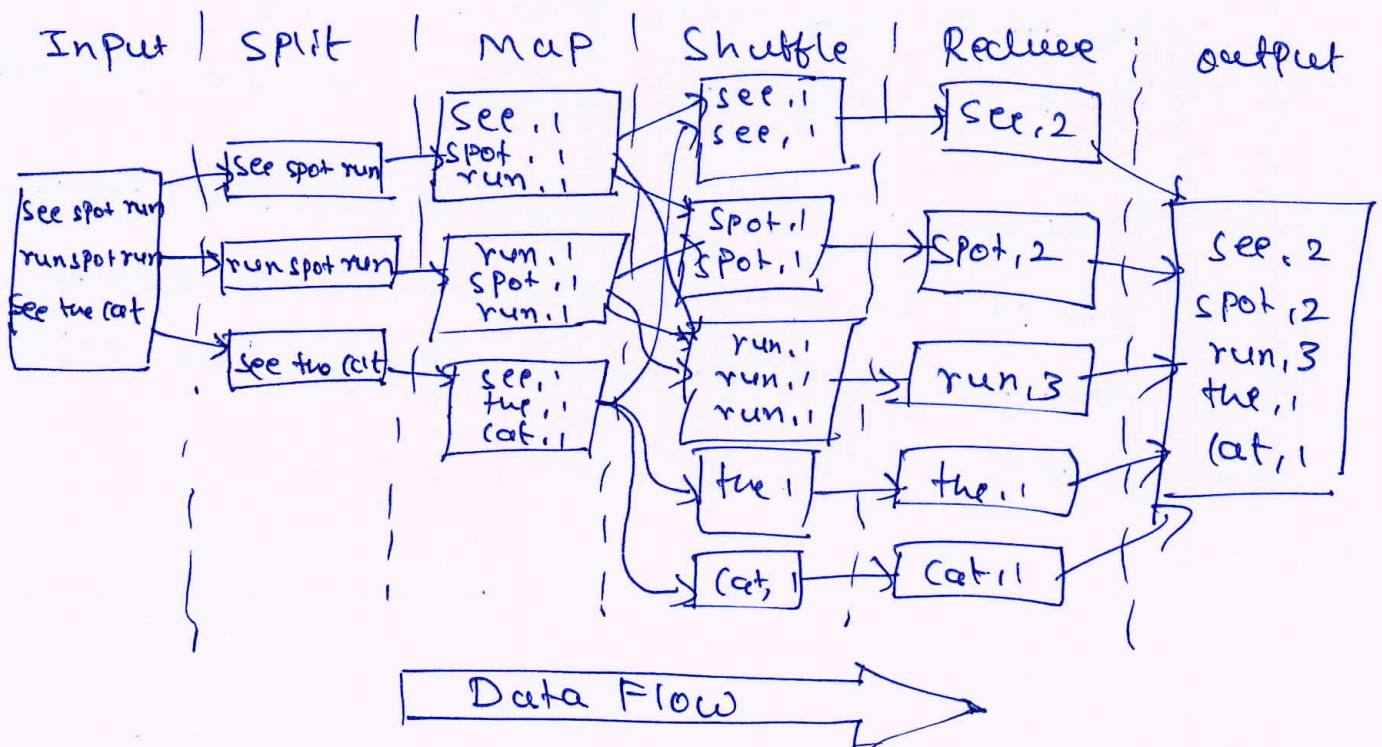 Input | Split | Map | Shuffle | Reduce | output
see spot run
run spot run
see the cat
see spot run
run spot run
see the cat
see, 1
spot, 1
run, 1
run, 1
spot, 1
run, 1
see, 1
the, 1
cat, 1
see, 1
see, 1
spot, 1
spot, 1
run, 1
run, 1
run, 1
the 1
cat, 1
see, 2
spot, 2
run, 3
the, 1
cat, 1
see, 2
spot, 2
run, 3
the, 1
cat, 1
Data Flow